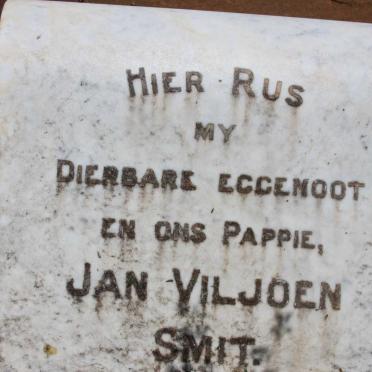 HIER RUS
MY
DIERBARE EGGENOOT
EN ONS PAPPIE,
JAN VILJOEN
SMIT.